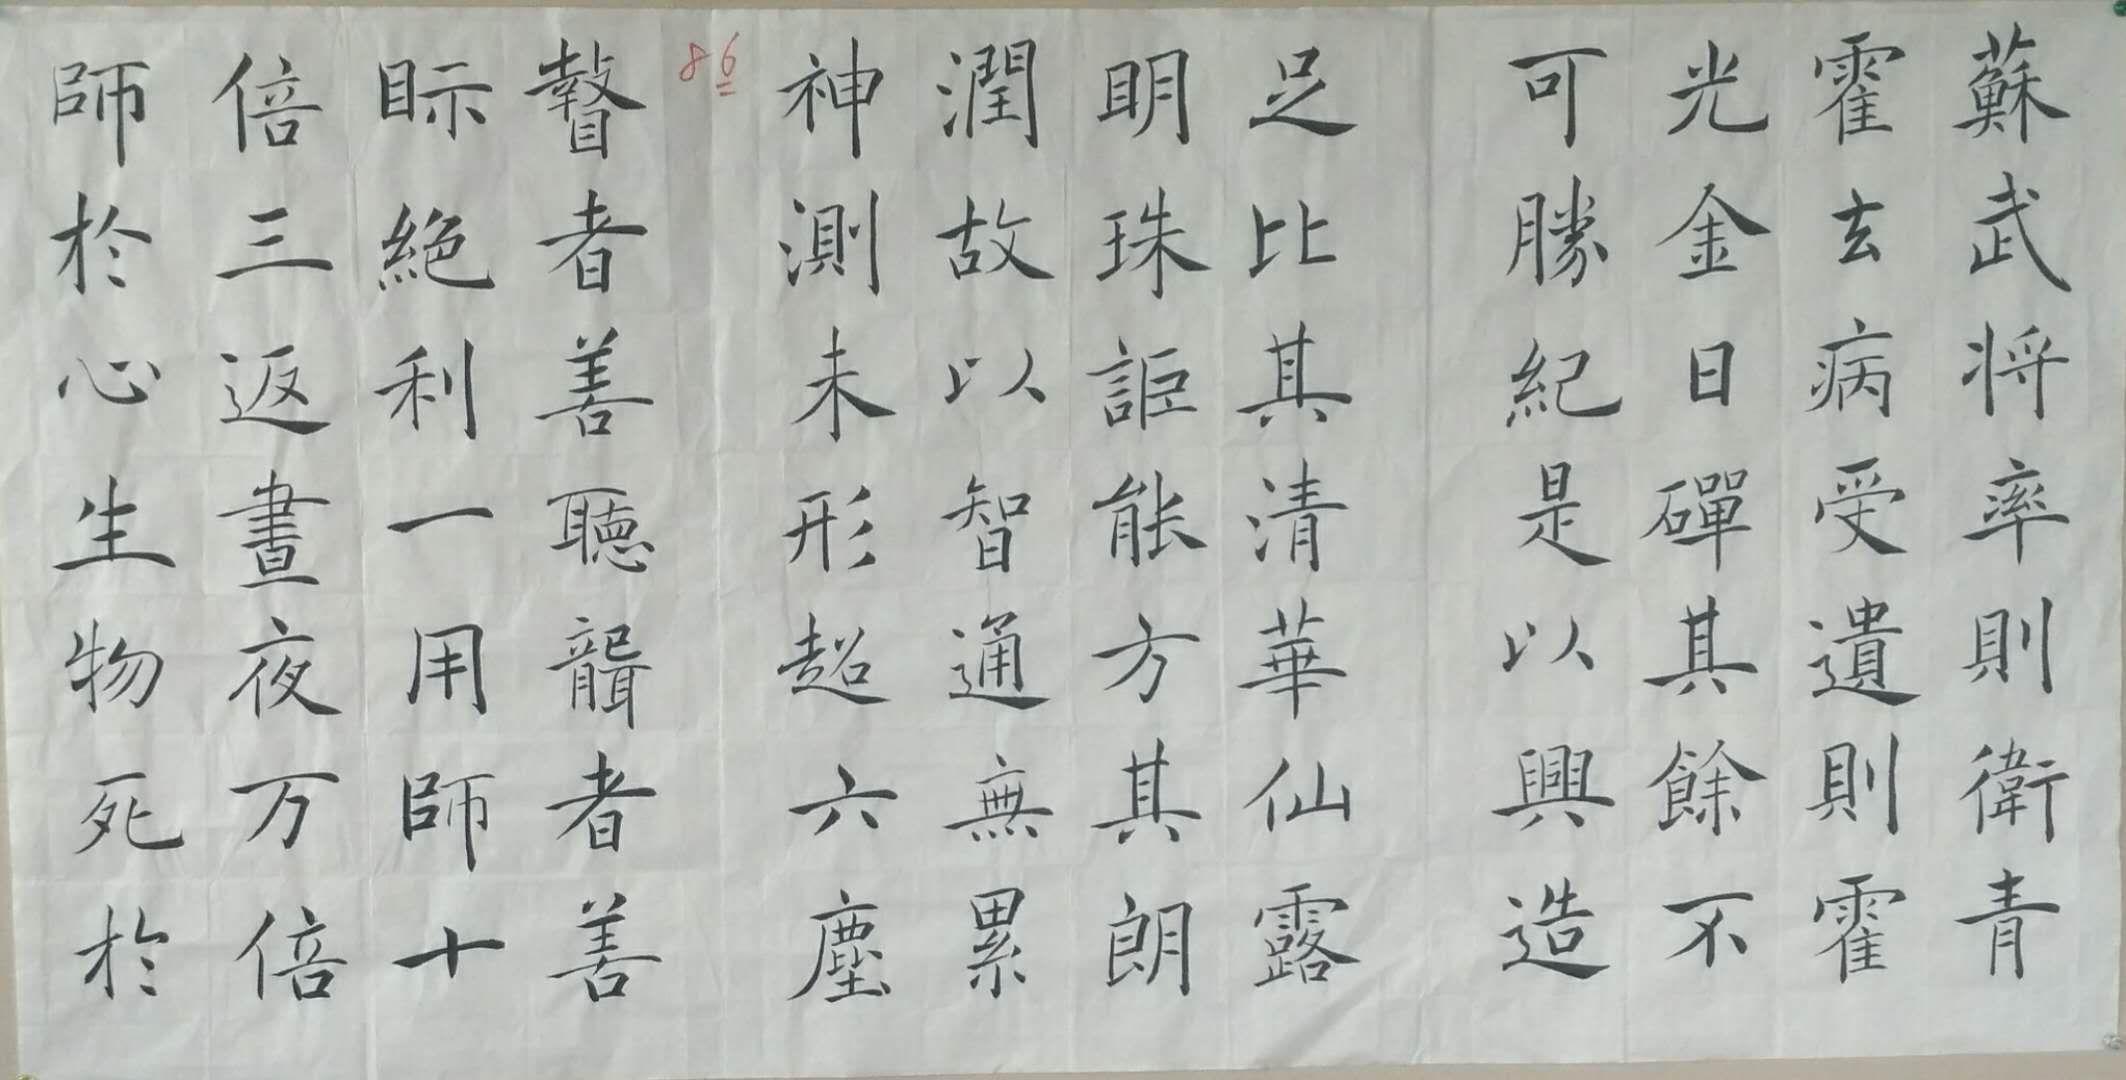 蘇武将率則衛青
霍去病受遺則霍
光金日磾其餘不
可勝紀是以興造
足比其清華仙露
明珠詎能方其朗
潤故以智通無累
神測未形超六塵
86
瞽者善聽聾者善
眎絶利一用師十
倍三返晝夜万倍
師於心生物死於